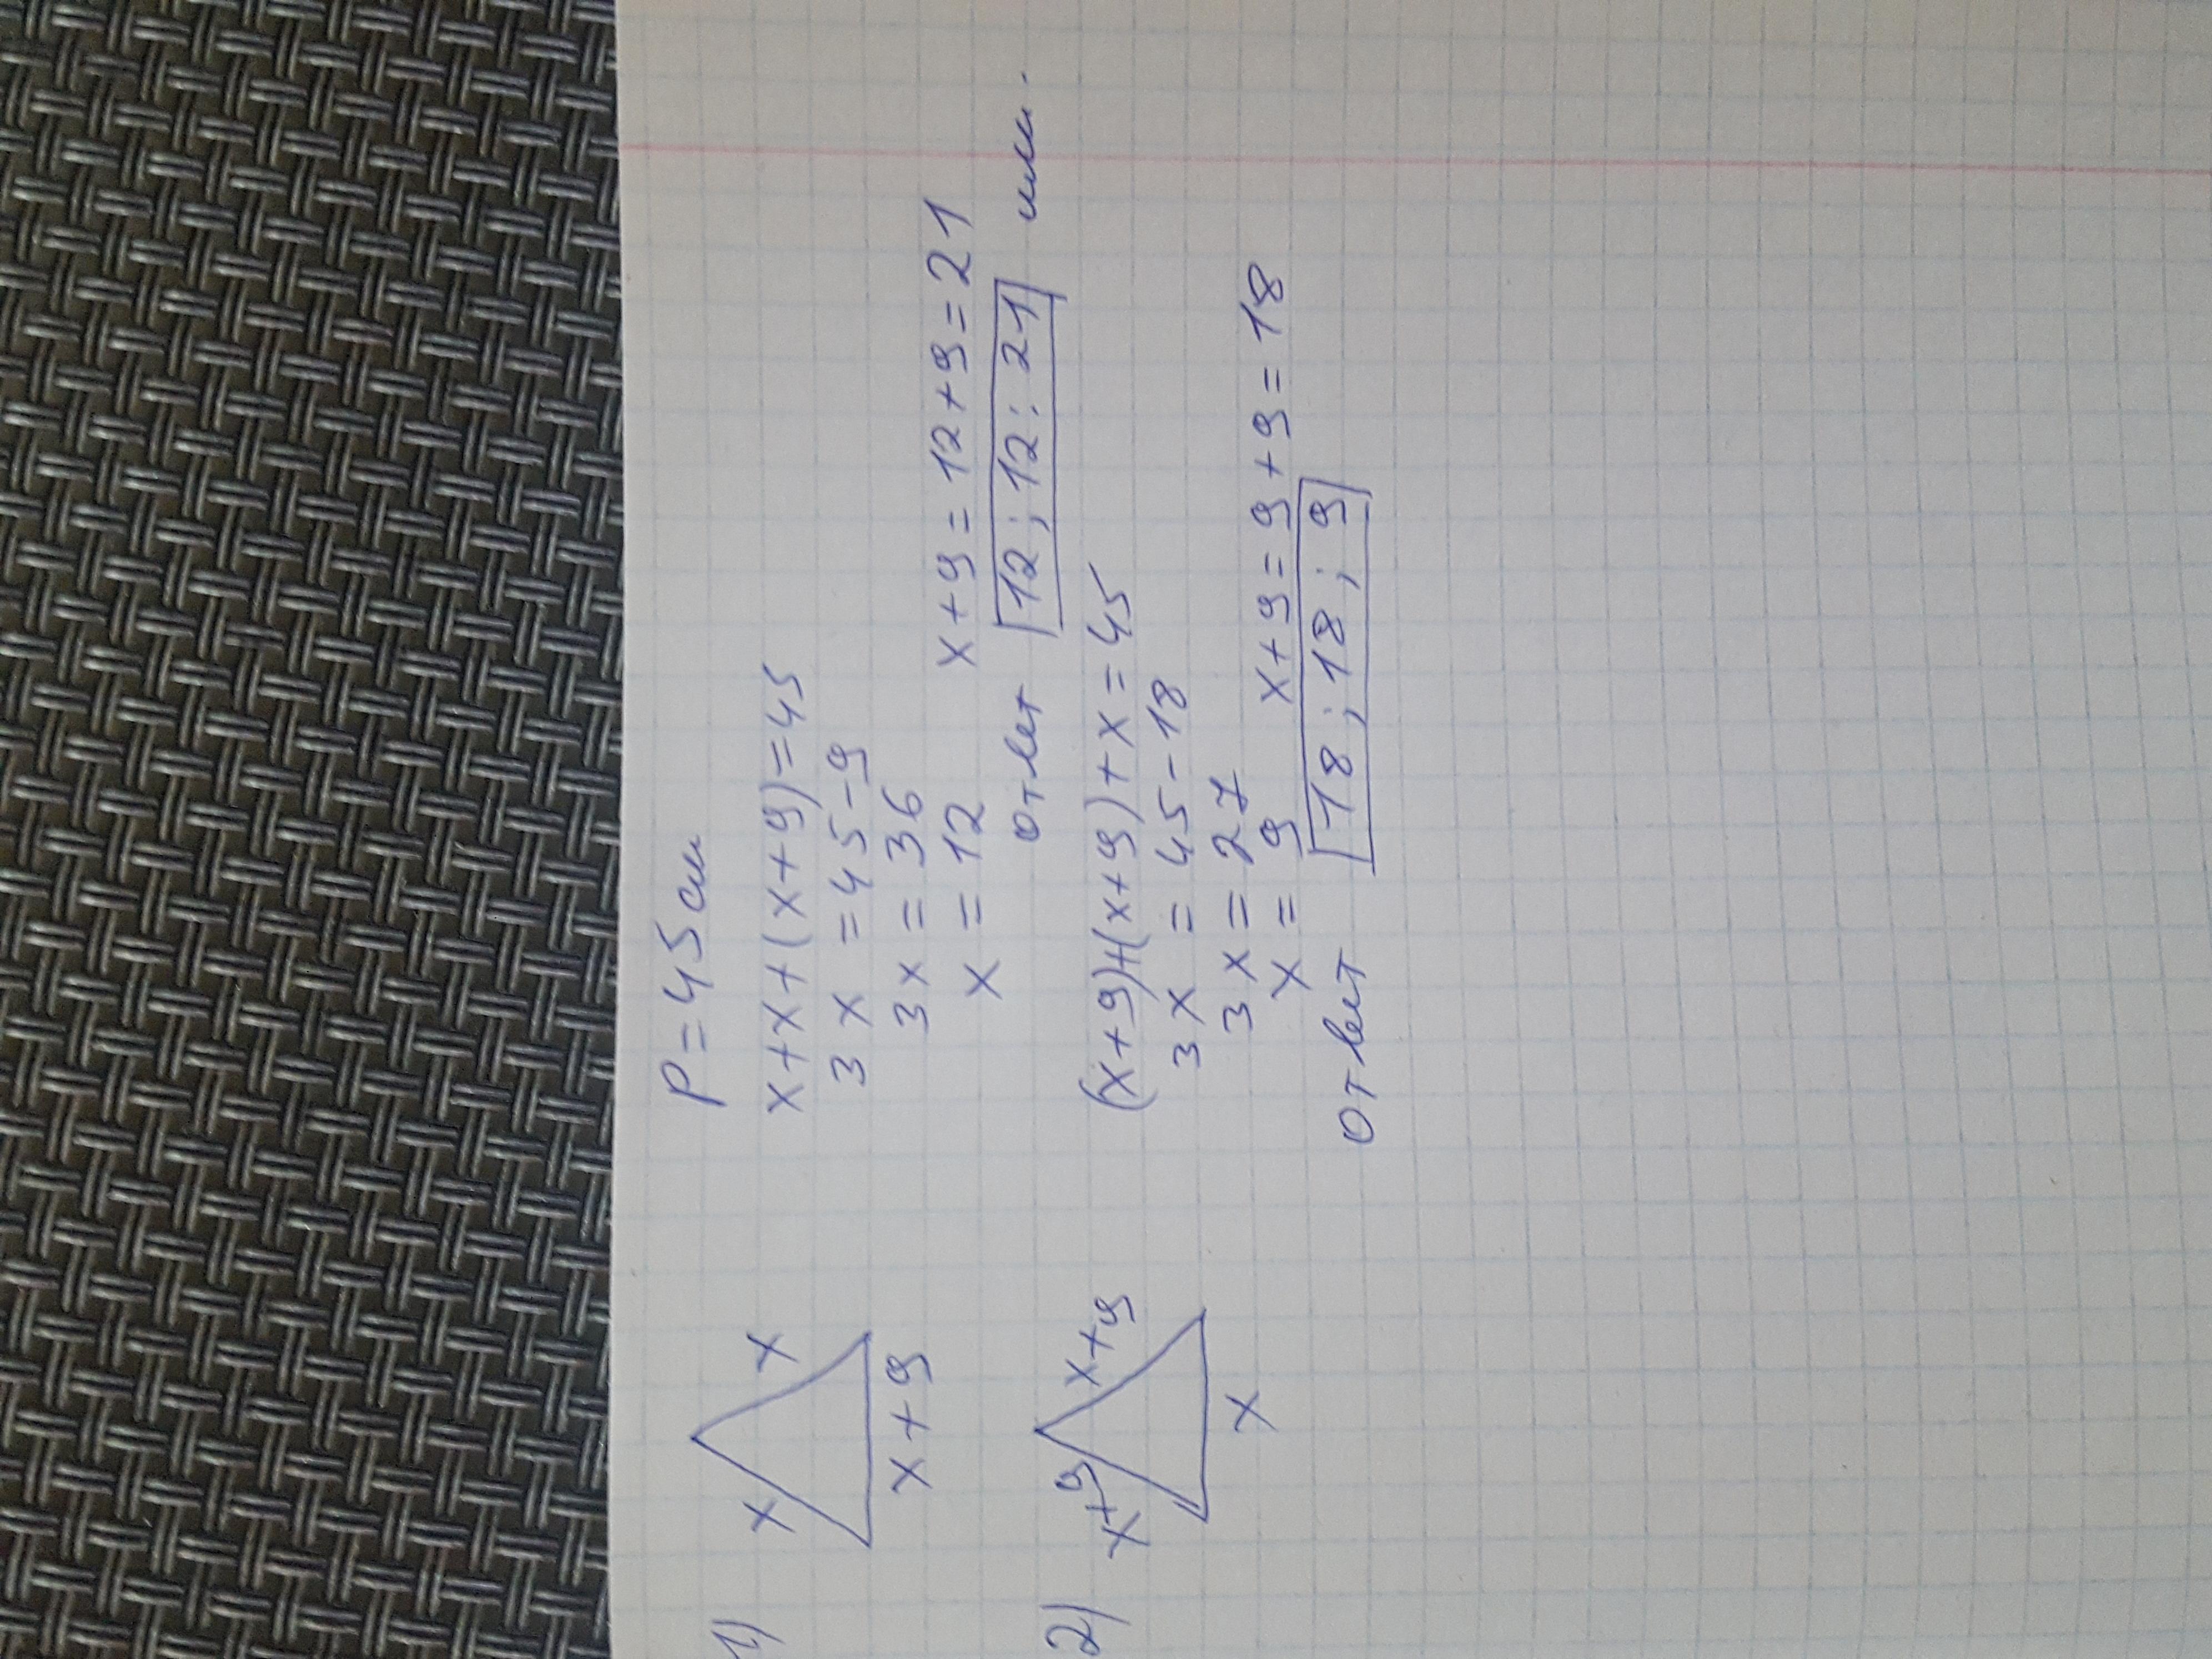 P = 45 см
1)
x
x
x + 9
x + x + (x + 9) = 45
3x = 45 - 9
3x = 36
x = 12
x + 9 = 12 + 9 = 21
ответ 12 ; 12 : 21 или.
2)
x + 9
x + 9
x
(x + 9) + (x + 9) + x = 45
3x = 45 - 18
3x = 27
x = 9
x + 9 = 9 + 9 = 18
ответ 18 ; 18 ; 9